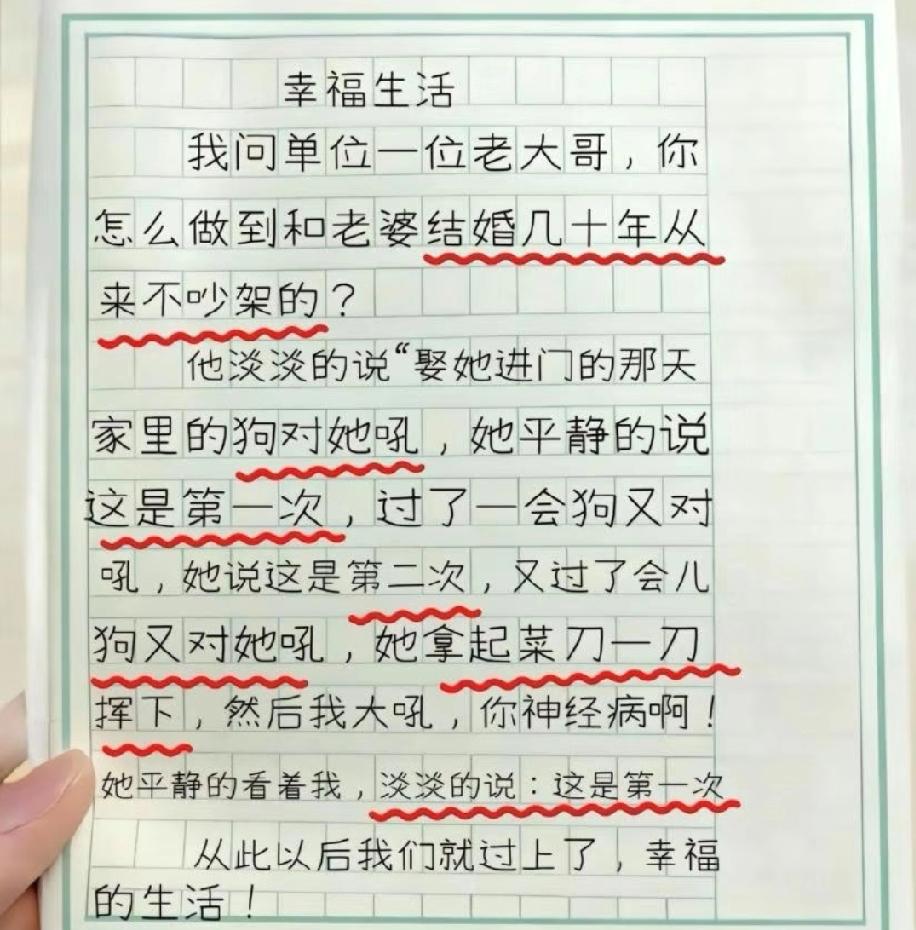 幸福生活
我问单位一位老大哥，你
怎么做到和老婆结婚几十年从
来不吵架的？
他淡淡的说“娶她进门的那天
家里的狗对她吼，她平静的说
这是第一次，过了一会狗又对
吼，她说这是第二次，又过了会儿
狗又对她吼，她拿起菜刀一刀
挥下，然后我大吼，你神经病啊！
她平静的看着我，淡淡的说：这是第一次
从此以后我们就过上了，幸福
的生活！